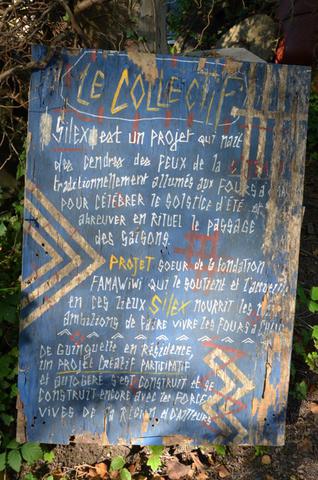 LE COLLECTIF
SILEX est UN PROJET qui naît
des cendres des feux de la
traditionnellement allumés aux FOURS à
POUR CÉLÉBRER le SOLSTICE D'ÉTÉ et
abreuver en RITUEL le PASSAGE
des SAISONS
PROJET SOEUR de la fondation
FAMAWIWI qui le soutient et l'accueille
en ces lieux SILEX NOURRIT les
AMBITIONS de faire VIVRE les FOURS à CHAUX
DE GUINGUETTE en RÉSIDENCE,
UN PROJET CRÉATIF PARTICIPATIF
et AUTOGÉRÉ S'EST CONSTRUIT et se
CONSTRUIT ENCORE avec les FORCES
VIVES de la RÉGION et D'AILLEURS